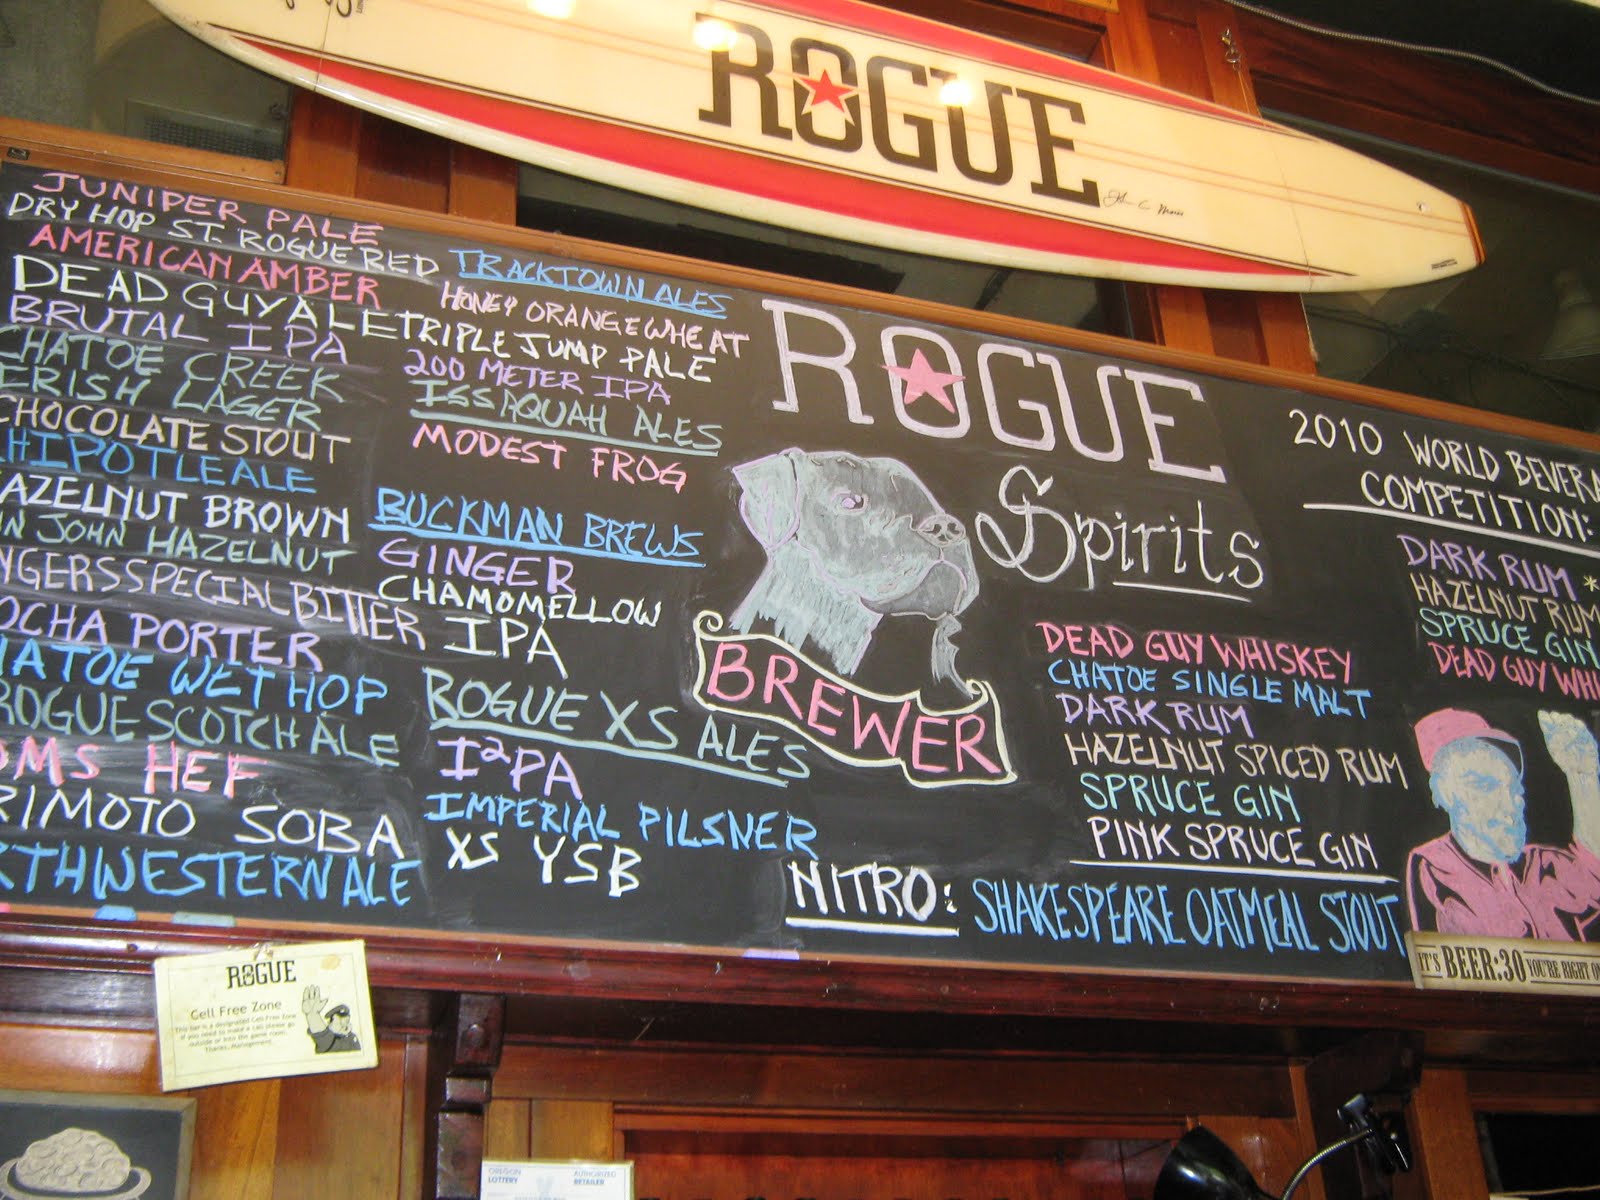 ROGUE
JUNIPER PALE
DRY HOP ST. ROGUE RED
AMERICAN AMBER
DEAD GUY ALE
BRUTAL IPA
CHATOE CREEK
ERISH LAGER
CHOCOLATE STOUT
HIPOTLE ALE
AZELNUT BROWN
N JOHN HAZELNUT
NGERS SPECIAL BITTER
OCHA PORTER
HATOE WET HOP
ROGUE SCOTCH ALE
OMS HEF
RIMOTO SOBA
RTHWESTERN ALE
TRACKTOWN ALES
HONEY ORANGE WHEAT
TRIPLE JUMP PALE
200 METER IPA
ISSAQUAH ALES
MODEST FROG
BUCKMAN BREWS
GINGER
CHAMOMELLOW
IPA
ROGUE XS ALES
I²PA
IMPERIAL PILSNER
XS YSB
ROGUE
Spirits
BREWER
DEAD GUY WHISKEY
CHATOE SINGLE MALT
DARK RUM
HAZELNUT SPICED RUM
SPRUCE GIN
PINK SPRUCE GIN
NITRO: SHAKESPEARE OATMEAL STOUT
2010 WORLD BEVERA
COMPETITION:
DARK RUM *
HAZELNUT RUM
SPRUCE GIN
DEAD GUY WHI
IT'S BEER:30 YOU'RE RIGHT ON
ROGUE
Cell Free Zone
This bar is a designated Cell Free Zone
if you need to make a call please go
outside or into the game room.
Thanks, Management
OREGON LOTTERY
AUTHORIZED RETAILER